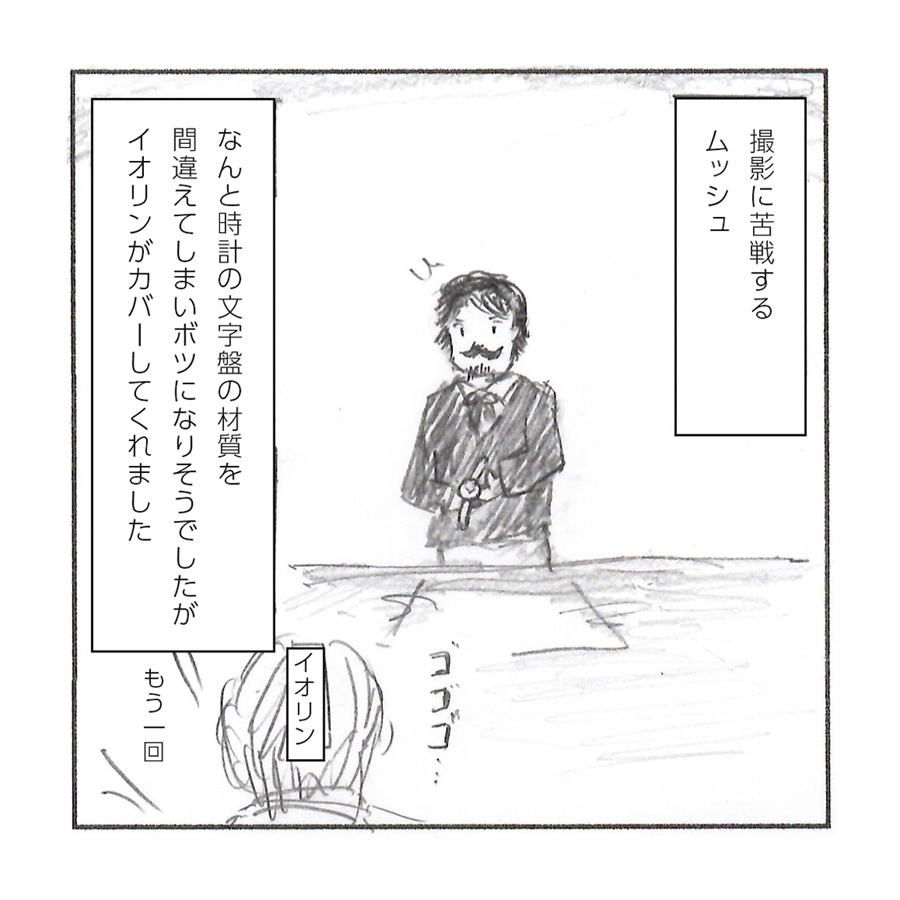 撮影に苦戦する
ムッシュ
なんと時計の文字盤の材質を
間違えてしまいボツになりそうでしたが
イオリンがカバーしてくれました
ゴゴゴ…
イオリン
もう一回